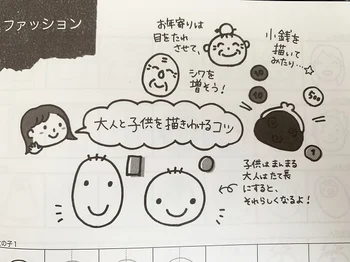 ファッション
お年寄りは
目をたれ
させて、
シワを
増そう!
小銭を
描いて
みたり…☆
10
10
500
1
大人と子供を描きわけるコツ
子供はまんまる
大人はたて長
にすると、
それらしくなるよ!